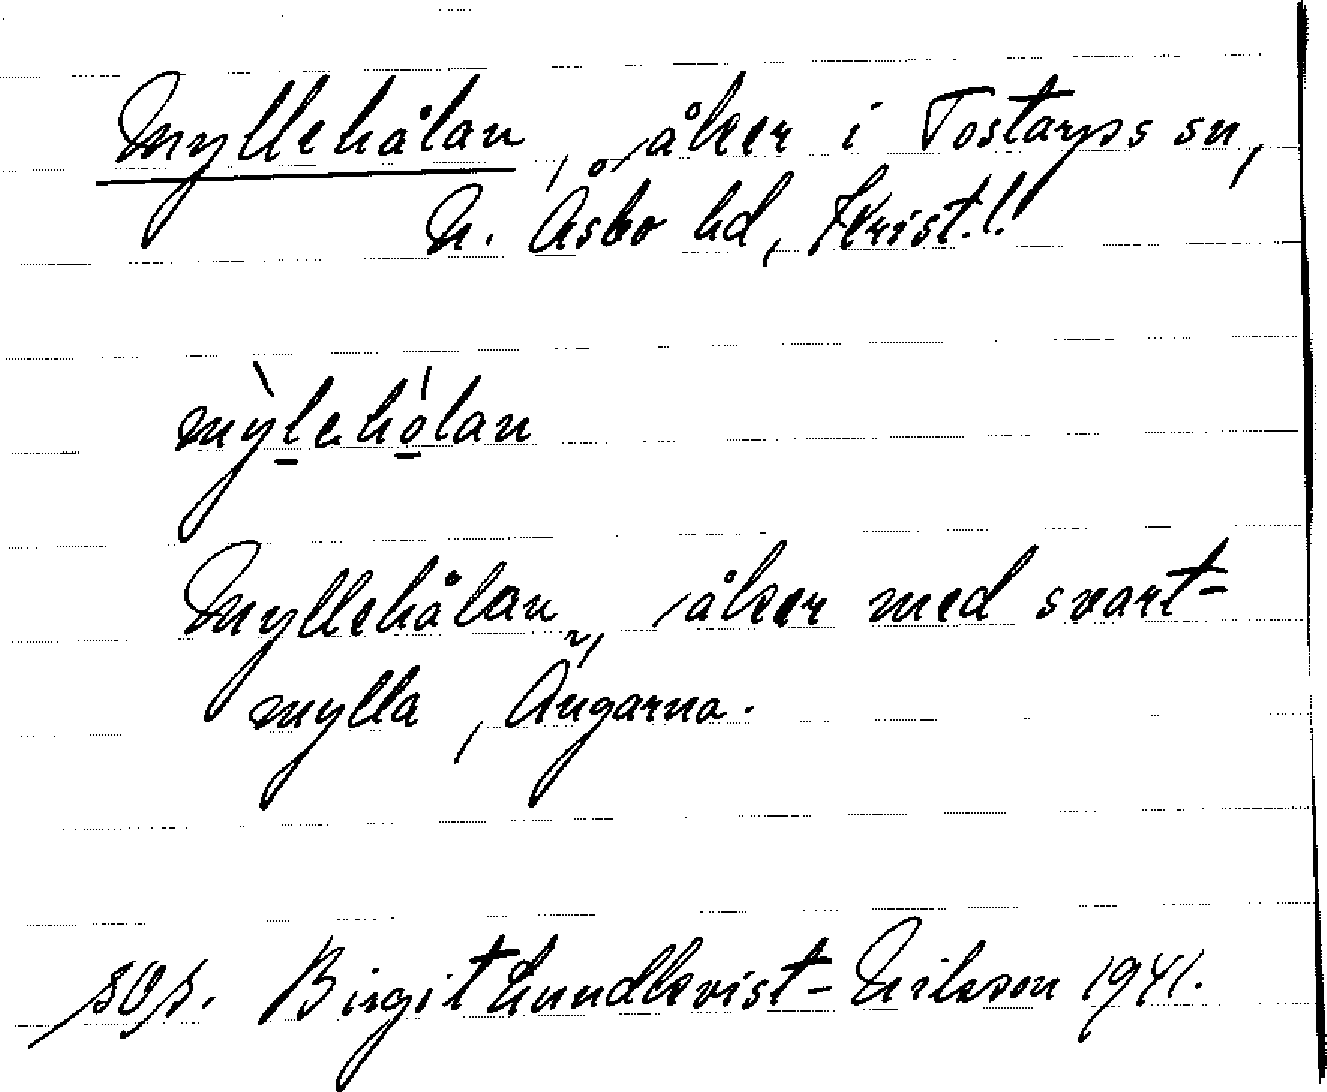 Myllehålan, åker i Tostarps sn,
N. Åsbo hd, Krist. l.
mỳlehólan
Myllehålan, åker med svart-
mylla, Ängarna.
Birgit Lundkvist-Erikson 1941.